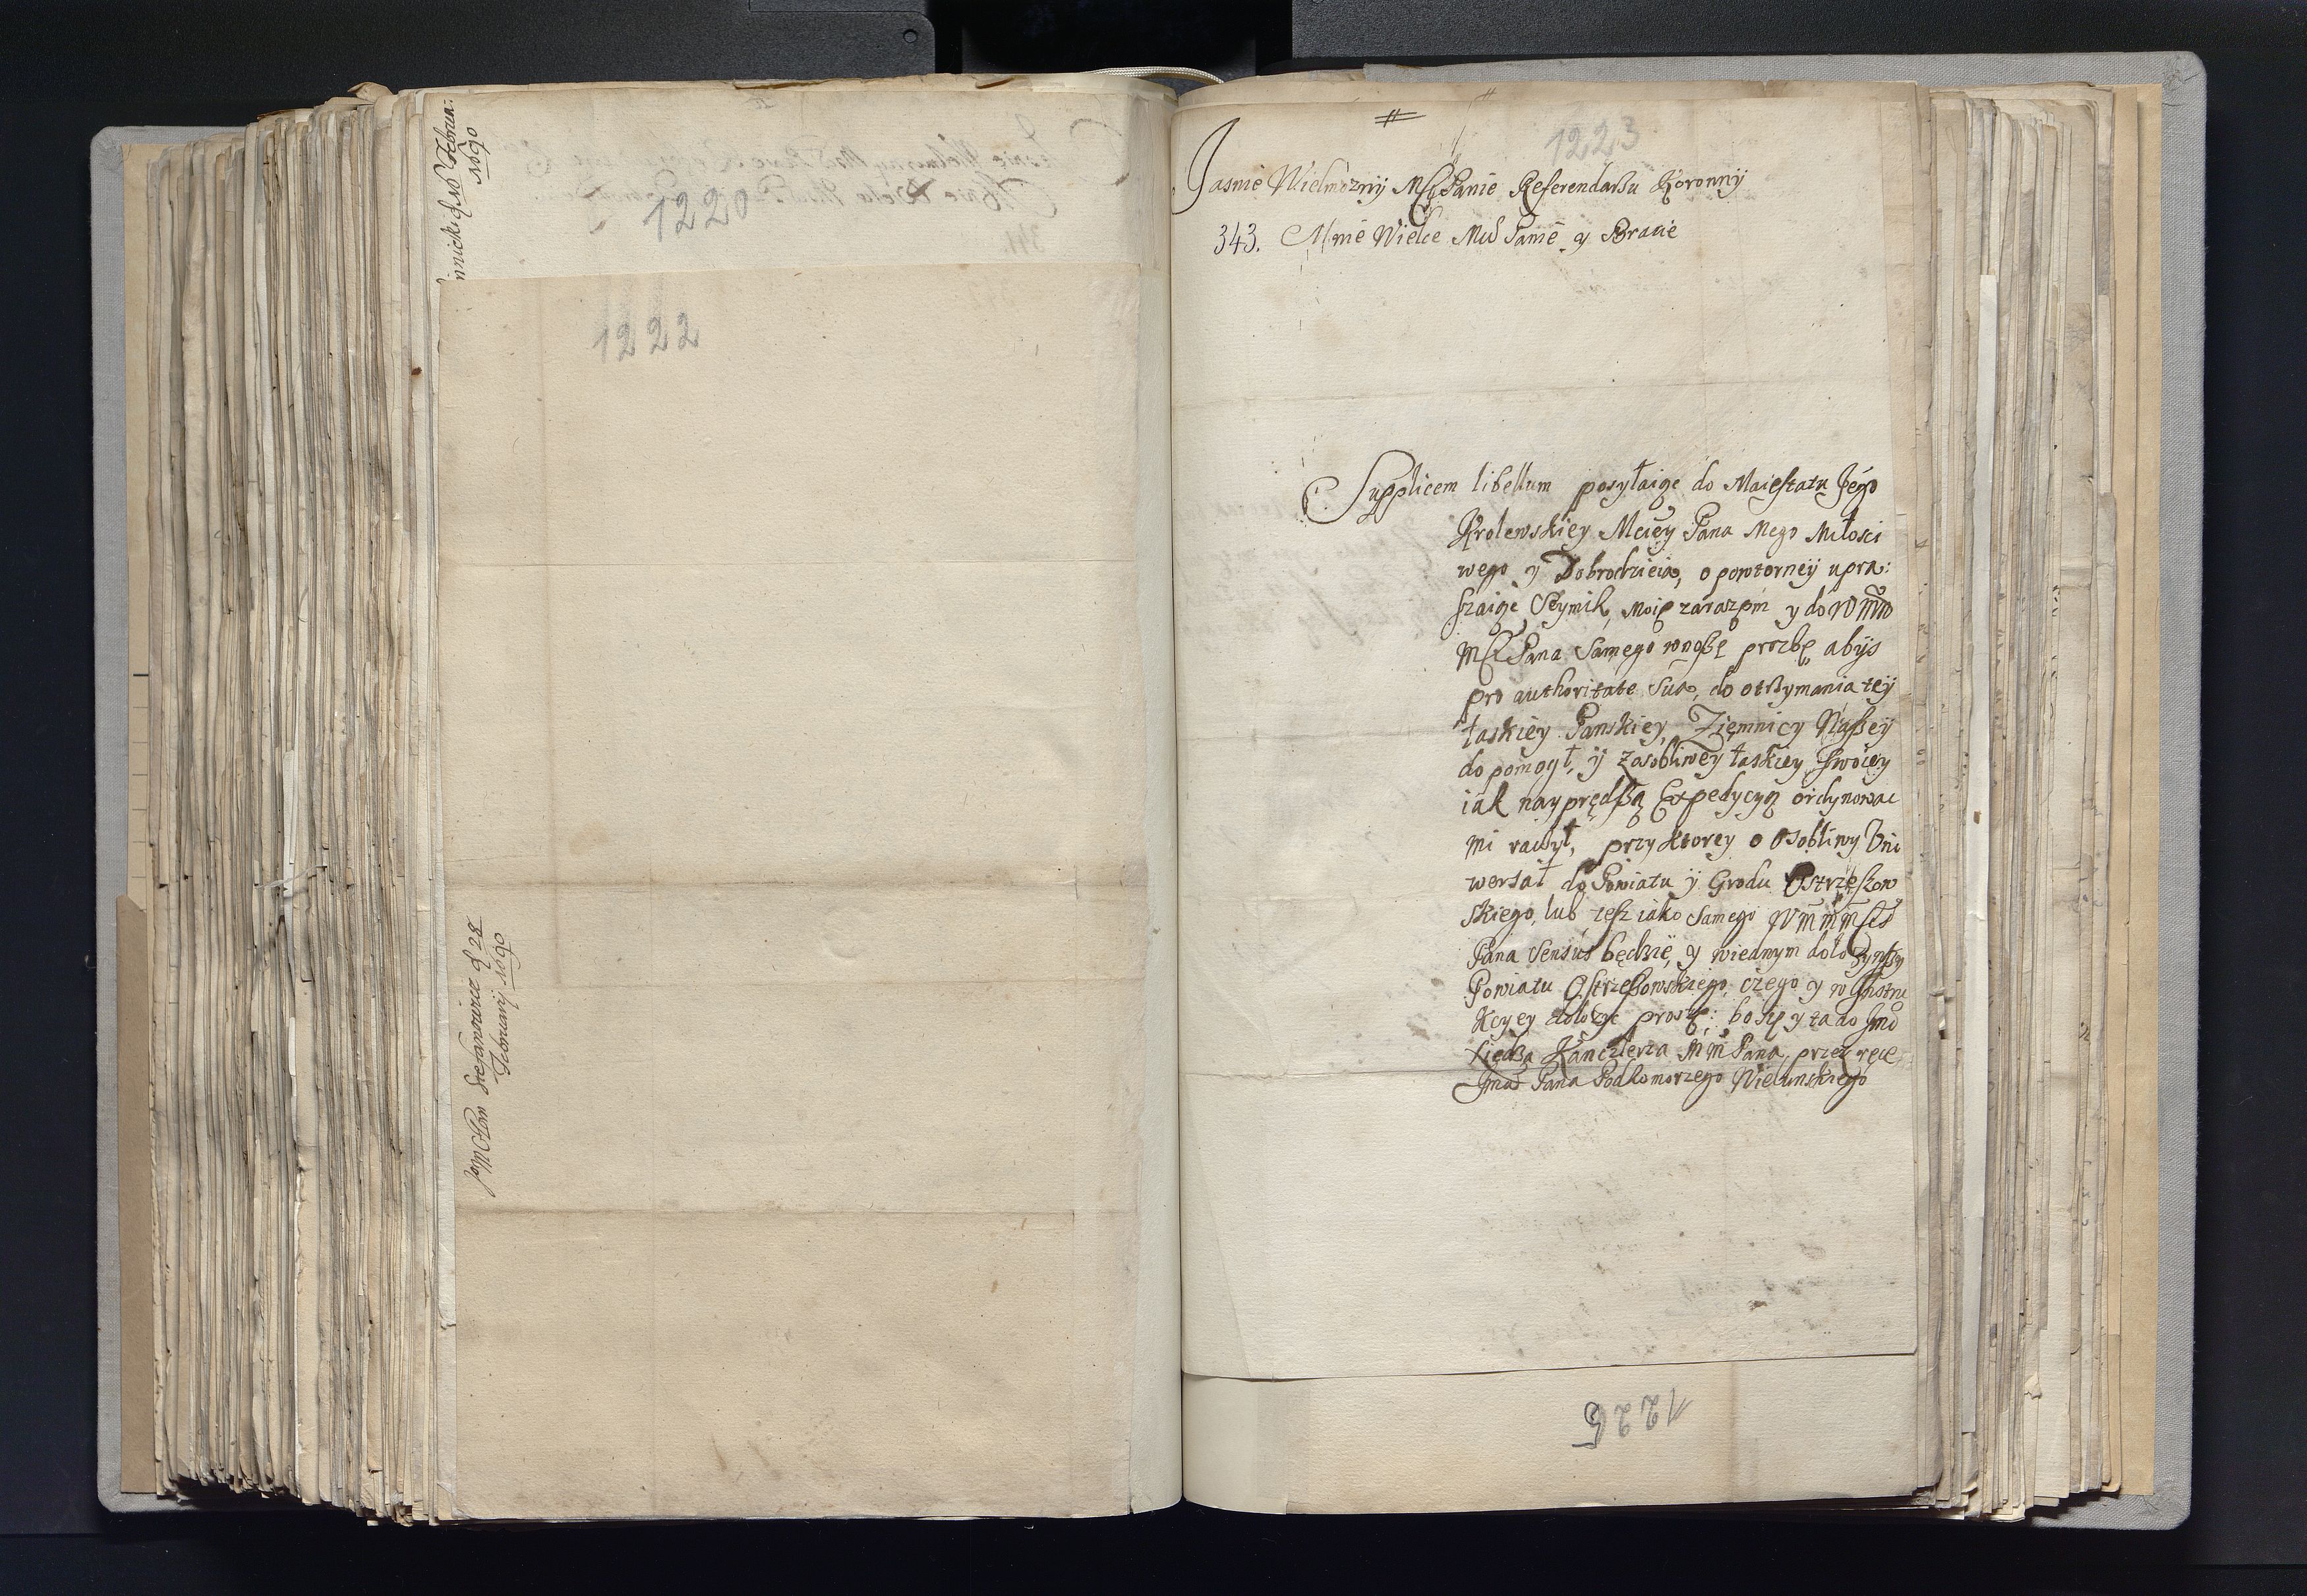 1220
1222
nnicki d 10 Februa:
1690
Jam Otton Stefanowicz d 28
Februarij 1690
1223
Jasnie Wielmozny Mſċi Panie Referendarſzu Koronny
343. Mnie Wielce Mċiẇ Panie y Bracie
Supplicem libellum posyłaiąc do Maiestatu Jego
Krolewskiey Mciey Pana Mego Miłosci
wego y Dobrodzieia, o powtorny upra:
szaiąc Seymik, Moię zarazem y do WMM
Mſċi Pana Samego wnoszę prozbę abys
pro authoritate Sua, do otrzymania tey
łaskiey Panskiey, Ziemnicy Naszey
dopomogł, y zosobliwey łaskiey swoiey
iak nayprędszą Expedycyą ordynowac
mi raczył, przy ktorey o osobliwy Uni
wersał do Powiatu y Grodu Ostrzeszow
skiego, lub tesz iako samego WMMMſċi
Pana sensus będzie, y wiednym dołozywszy
Powiatu Ostrzeszowskiego, czego y w Jnstru
kcyey dołozyc proszę: bo się y ta do Jmċi
Xiędza Kanclerza MM Pana, przez ręce
Jmċi Pana Podkomorzego Wielunskiego
1225